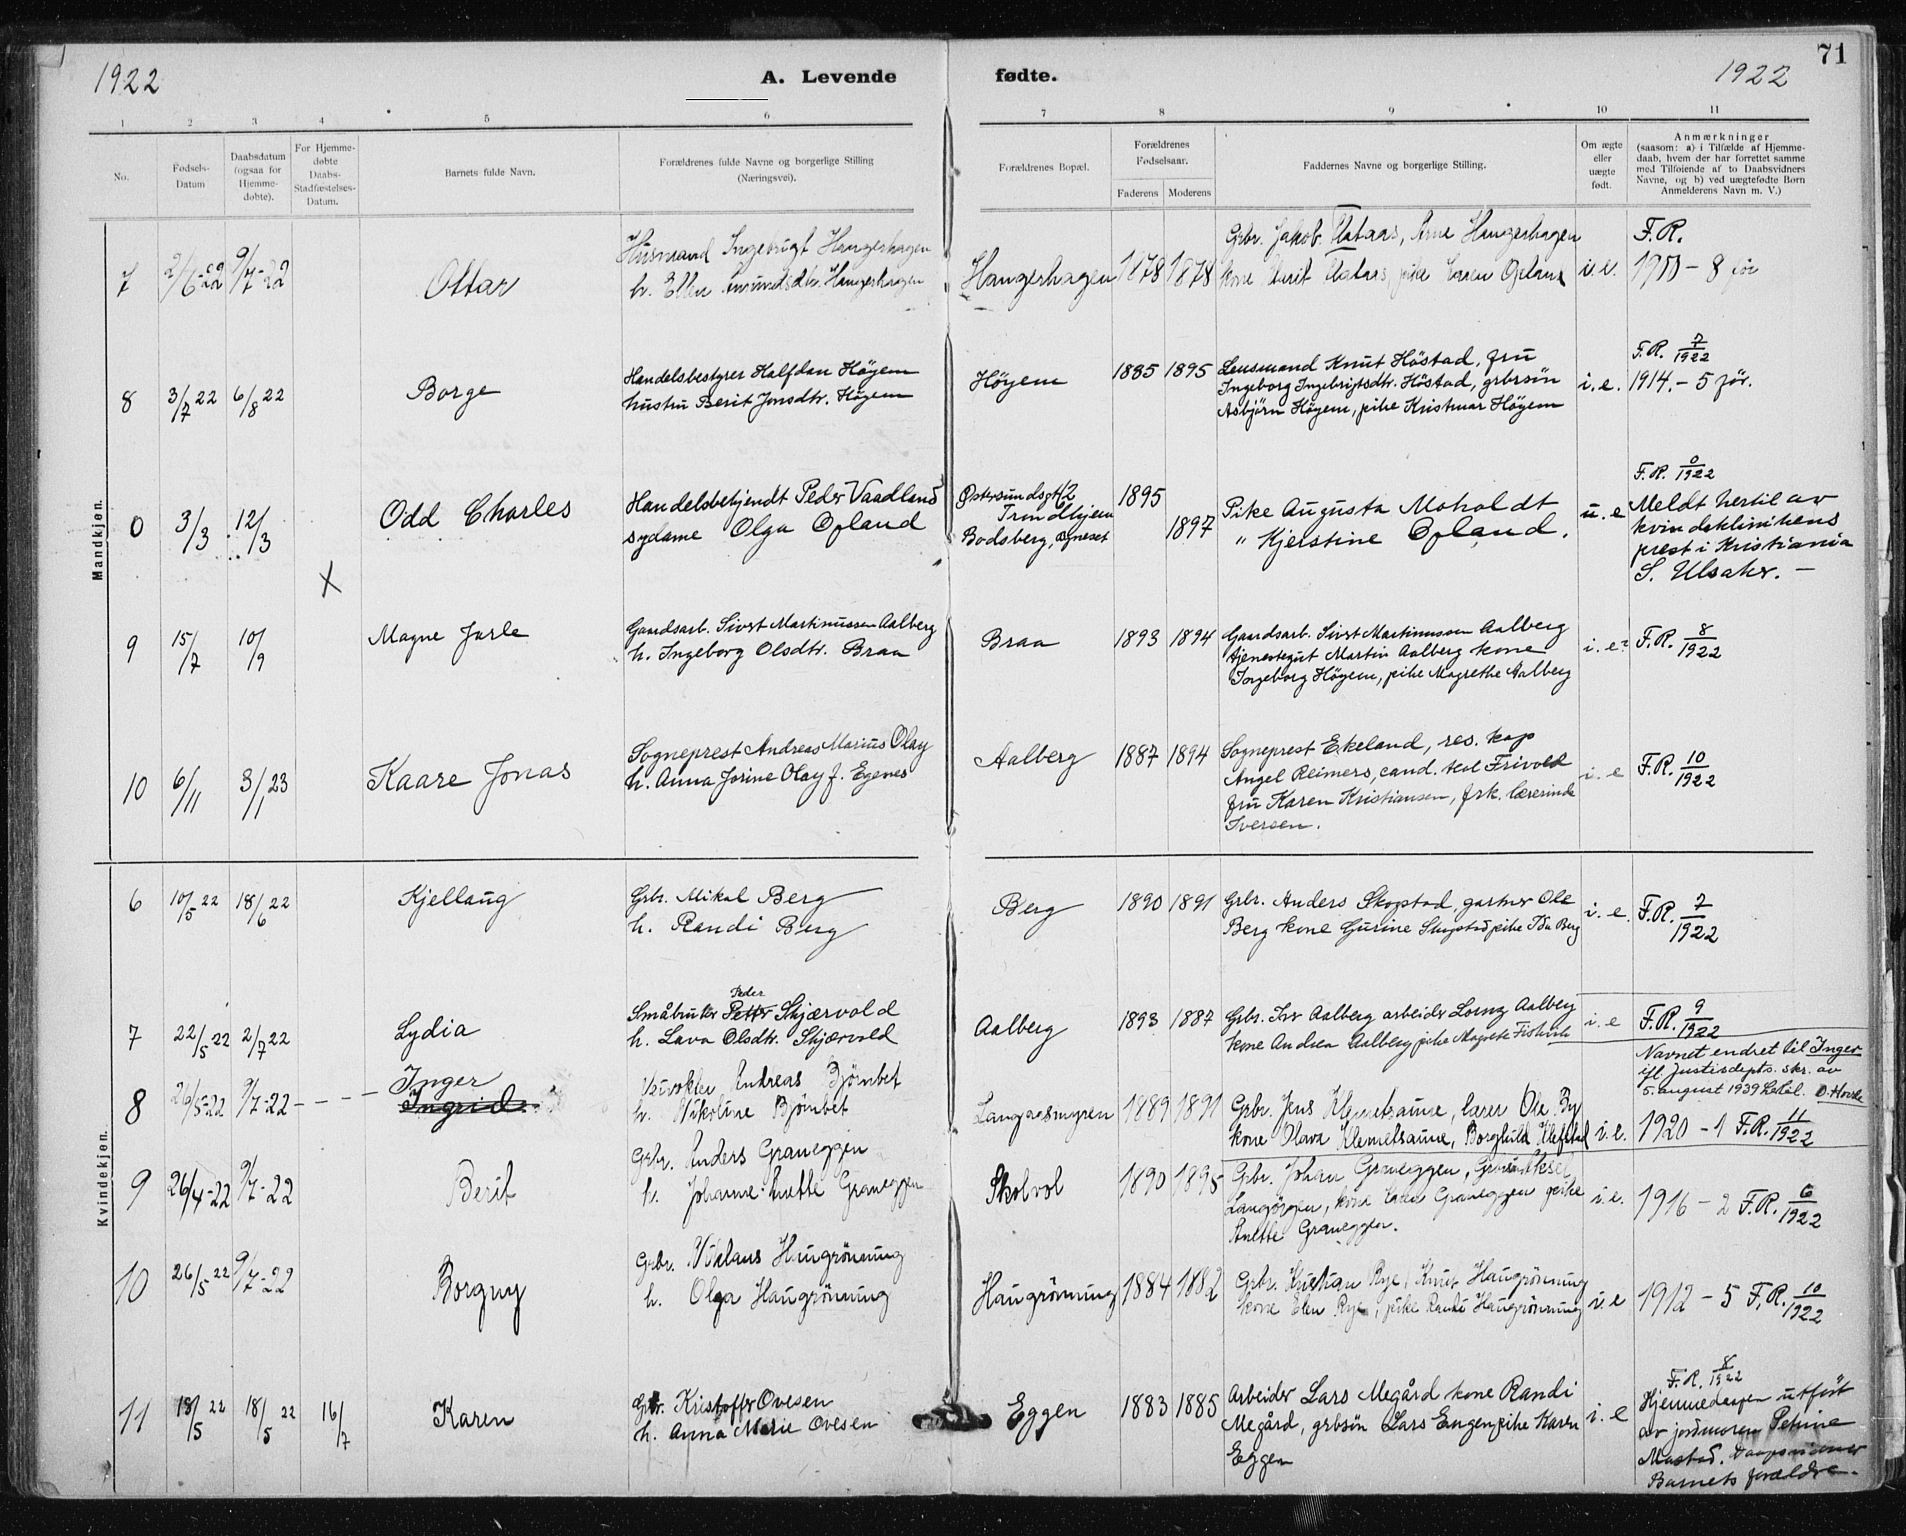 1922
A. Levende fødte.
1922
71
1 2 3 4 5 6 7 8 9 10 11
No.
Fødsels-
Datum
Daabsdatum
(ogsaa for
Hjemme-
døbte).
For Hjemme-
døbte
Daabs-
Stadfæstelses-
Datum.
Barnets fulde Navn.
Forældrenes fulde Navne og borgerlige Stilling
(Næringsvei).
Forældrenes Bopæl.
Forældrenes
Fødselsaar.
Faderens Moderens
Faddernes Navne og borgerlige Stilling.
Om ægte
eller
uægte
født.
Anmærkninger
(saasom: a) i Tilfælde af Hjemme-
daab, hvem der har forrettet samme
med Tilføiende af to Daabsvidners
Navne, og b) ved uægtefødte Børn
Anmelderens Navn m. V.)
Mandkjøn.
7 2/6-22 9/7-22 Ottar
Husmand Ingebrigt Haugerhagen
h. Ellen Amundsdtr. Haugerhagen
Haugerhagen 1878 1878
Grbr. Jakob Flataas, Arne Haugerhagen
kone Marit Flataas, pike Karen Opland
i.e.
F.R.
8 før
8 3/7 22 6/8 22 Borge
Handelsbestyrer Halfdan Höyem
hustru Berit Jonsdtr. Höyem
Höyem 1885 1895
Lensmand Knut Höstad, fru
Ingeborg Ingebrigtsdtr. Höstad, grbrsön
Asbjörn Höyem, pike Kristmar Höyem
i.e.
F.R. 7/1922
1914. - 5 för.
0 3/3 12/3 Odd Charles
Handelsbetjendt Peder Vaadland
sydame Olga Opland
Østersundsgt 42
Trondhjem
Bodsberg, Byneset
1895
1897
Pike Augusta Moholdt
" Kjerstine Opland.
u.e
F.R. 0/1922
Meldt hertil av
kvindeklinikens
prest i Kristiania
S. Ulsaker. -
X
9 15/7 10/9 Magne Jarle
Gaardsarb. Sivert Martinussen Aalberg
h. Ingeborg Olsdtr. Braa
Braa 1893 1894
Gaardsarb. Sivert Martinussen Aalberg
tjenestegut Martin Aalberg kone
Ingeborg Höyem, pike Magrethe Aalberg
i. e?
F.R. 8/1922
10 6/11 3/1 23 Kaare Jonas
Sogneprest Andreas Marius Olay
h. Anna Jorine Olay f. Egenes
Aalberg 1887 1894
Sogneprest Ekeland, res. kap
Angel Reimers, cand. teol Frivold
fru Karen Kristiansen, frk. lærerinde
Iversen.
i. e
F.R. 10/1922
Kvindekjøn.
6 10/5 22 18/6 22 Kjellaug
Grbr. Mikal Berg
h. Randi Berg
Berg 1890 1891
Grbr. Anders Skogstad, gartner Ole
Berg kone Gurine Skogstad pike Ida Berg
i. e.
F.R. 7/1922
7 22/5 22 2/7 22 Lydia
Peder
Småbruker Petter Skjærvold
h. Lava Olsdtr. Skjærvold
Aalberg 1893 1887
Grbr. Ivr Aalberg arbeider Lornz Aalberg
kone Andrea Aalberg pike Magrete
i. e
F.R. 9/1922
Navnet endret til Inger
ifl. Justisdepts. skr. av
5. august 1939
8 26/5-22 9/7-22 Inger
Ingrid
Andreas Björnbet
h. Nikoline Björnbet
Langaasmyren 1889 1891
Grbr. Jens Klemetsaune, lærer Ole By
kone Olava Klemetsaune, Borghild Klefstad
i.e.
1920 - 1 F.R. 11/1922
9 26/4-22 9/7-22 Berit
Grbr. Anders Graneggen
h. Johanne Anette Graneggen
Skolvol 1890 1895
Grbr. Johan Graneggen,
Langörgen, kone Graneggen pike
Anette Graneggen.
i.e.
1916 - 2 F.R. 6/1922
10 26/5 22 9/7-22 Borgny
Grbr. Niklaus Haugrönning
h. Olga Haugrönning
Haugrönning 1884 1882
Grbr. Kristian Rye, Knut Haugrönning
kone Elen Rye, pike Randi Haugrönning
i.e
1912 - 5 F.R. 10/1922
11 18/5 22 18/5 22 16/7 Karen
Gbr. Kristoffer Ovesen
h. Anna Marie Ovesen
Eggen 1883 1885
Arbeider Lars Megård kone Randi
Megård, grbsön Lars Engen pike Karen
Eggen
i. e
F.R. 8/1922
Hjemmedaapen utfört
av jordmoren Petrine
Mostad. Daapsvidner
Barnets forældre.